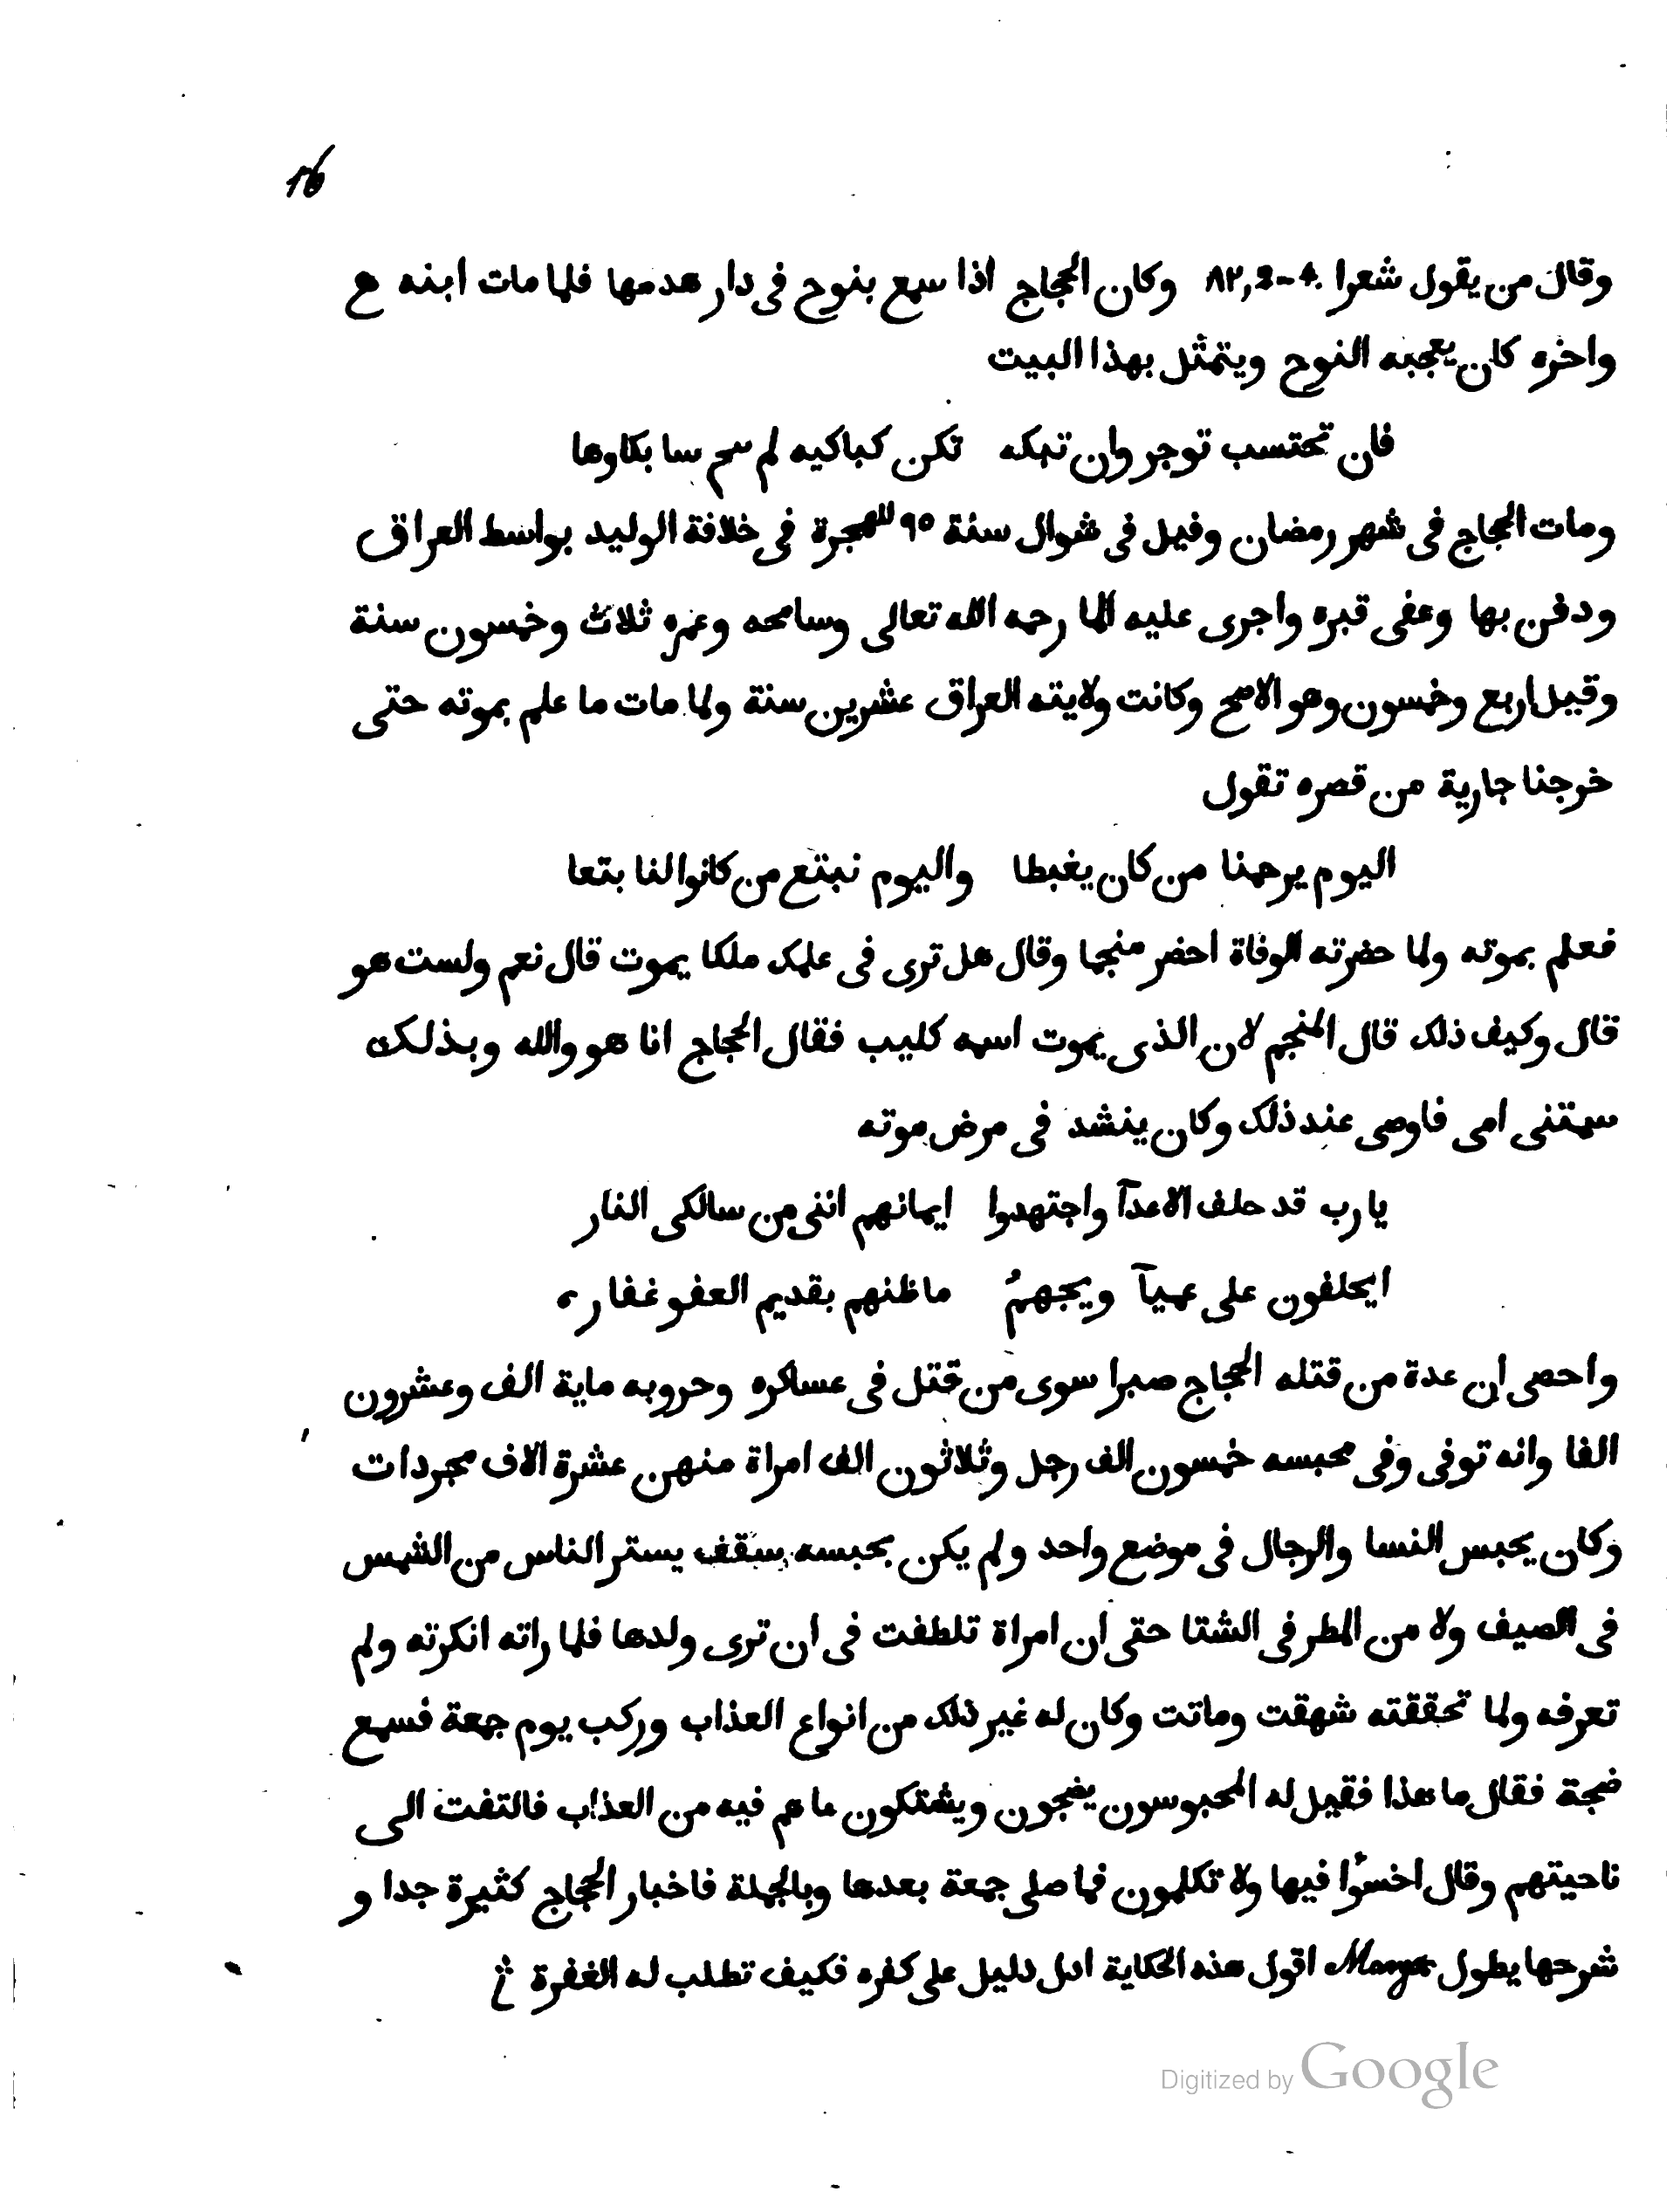 16
وقال من يقول شعرا ٨٢,2-4. وكان الحجاج اذا سمع بنوح فى دار هدمها فلما مات ابنه
واخره كان يعجبه النوح ويتمثل بهذا البيت
فان تحتسب توجر وان تبكه تكن كباكيه لم بكاوها
ومات الحجاج فى شهر رمضان وفيل فى شوال سنة ٩٥ للهجرة فى خلافة الوليد بواسط العراق
ودفن بها وعفى قبره واجرى عليه الما رحمه الله تعالى وسامحه وعمره ثلاث وخمسون سنة
وقيل اربع وخمسون وهو الاصح وكانت ولايته العراق عشرين سنة ولما مات ما علم بموته حتى
خرجنا جارية من قصره تقول
اليوم يرحمنا من كان يغبطا واليوم نبتع من كانوا لنا بتعا
فعلم بموته ولما حضرته الوفاة احضر منجما وقال هل ترى فى علمك ملكا يموت قال نعم ولست هو
قال وكيف ذلك قال المنجم لان الذى يموت اسمه كليب فقال الحجاج انا هو والله وبذلك
سمتنى امى فاوصى عند ذلك وكان ينشد فى مرض موته
يا رب قد حلف الاعدآ واجتهدوا ايمانهم اننى من سالكى النار
ايحلفون على عميآ ويجهمُ ما ظنهم بقديم العفو غفاره
واحصى ان عدة من قتله الحجاج صبرا سوى من قتل فى عساكره وحروبه ماية الف وعشرون
الفا وانه توفى وفى محبسه خمسون الف رجل وثلاثون الف امراة منهن عشرة الاف مجردات
وكان يحبس النسا والرجال فى موضع واحد ولم يكن بحبسه سقف يستر الناس من الشمس
فى الصيف ولا من المطر فى الشتا حتى ان امراة تلطفت فى ان ترى ولدها فلما راته انكرته ولم
تعرفه ولما تحققته شهقت وماتت وكان له غير ذلك من انواع العذاب وركب يوم جمعة فسمع
ضجة فقال ما هذا فقيل له المحبوسون يضجون ويشتكون ما هم فيه من العذاب فالتفت الى
ناحيتهم وقال اخسؤا فيها ولا تكلمون فما صلى جمعة بعدها وبالجملة فاخبار الحجاج كثيرة جدا و
شرحها يطول اقول هذه الحكاية ادل دليل على كفره فكيف تطلب له الغفرة
Digitized by Google